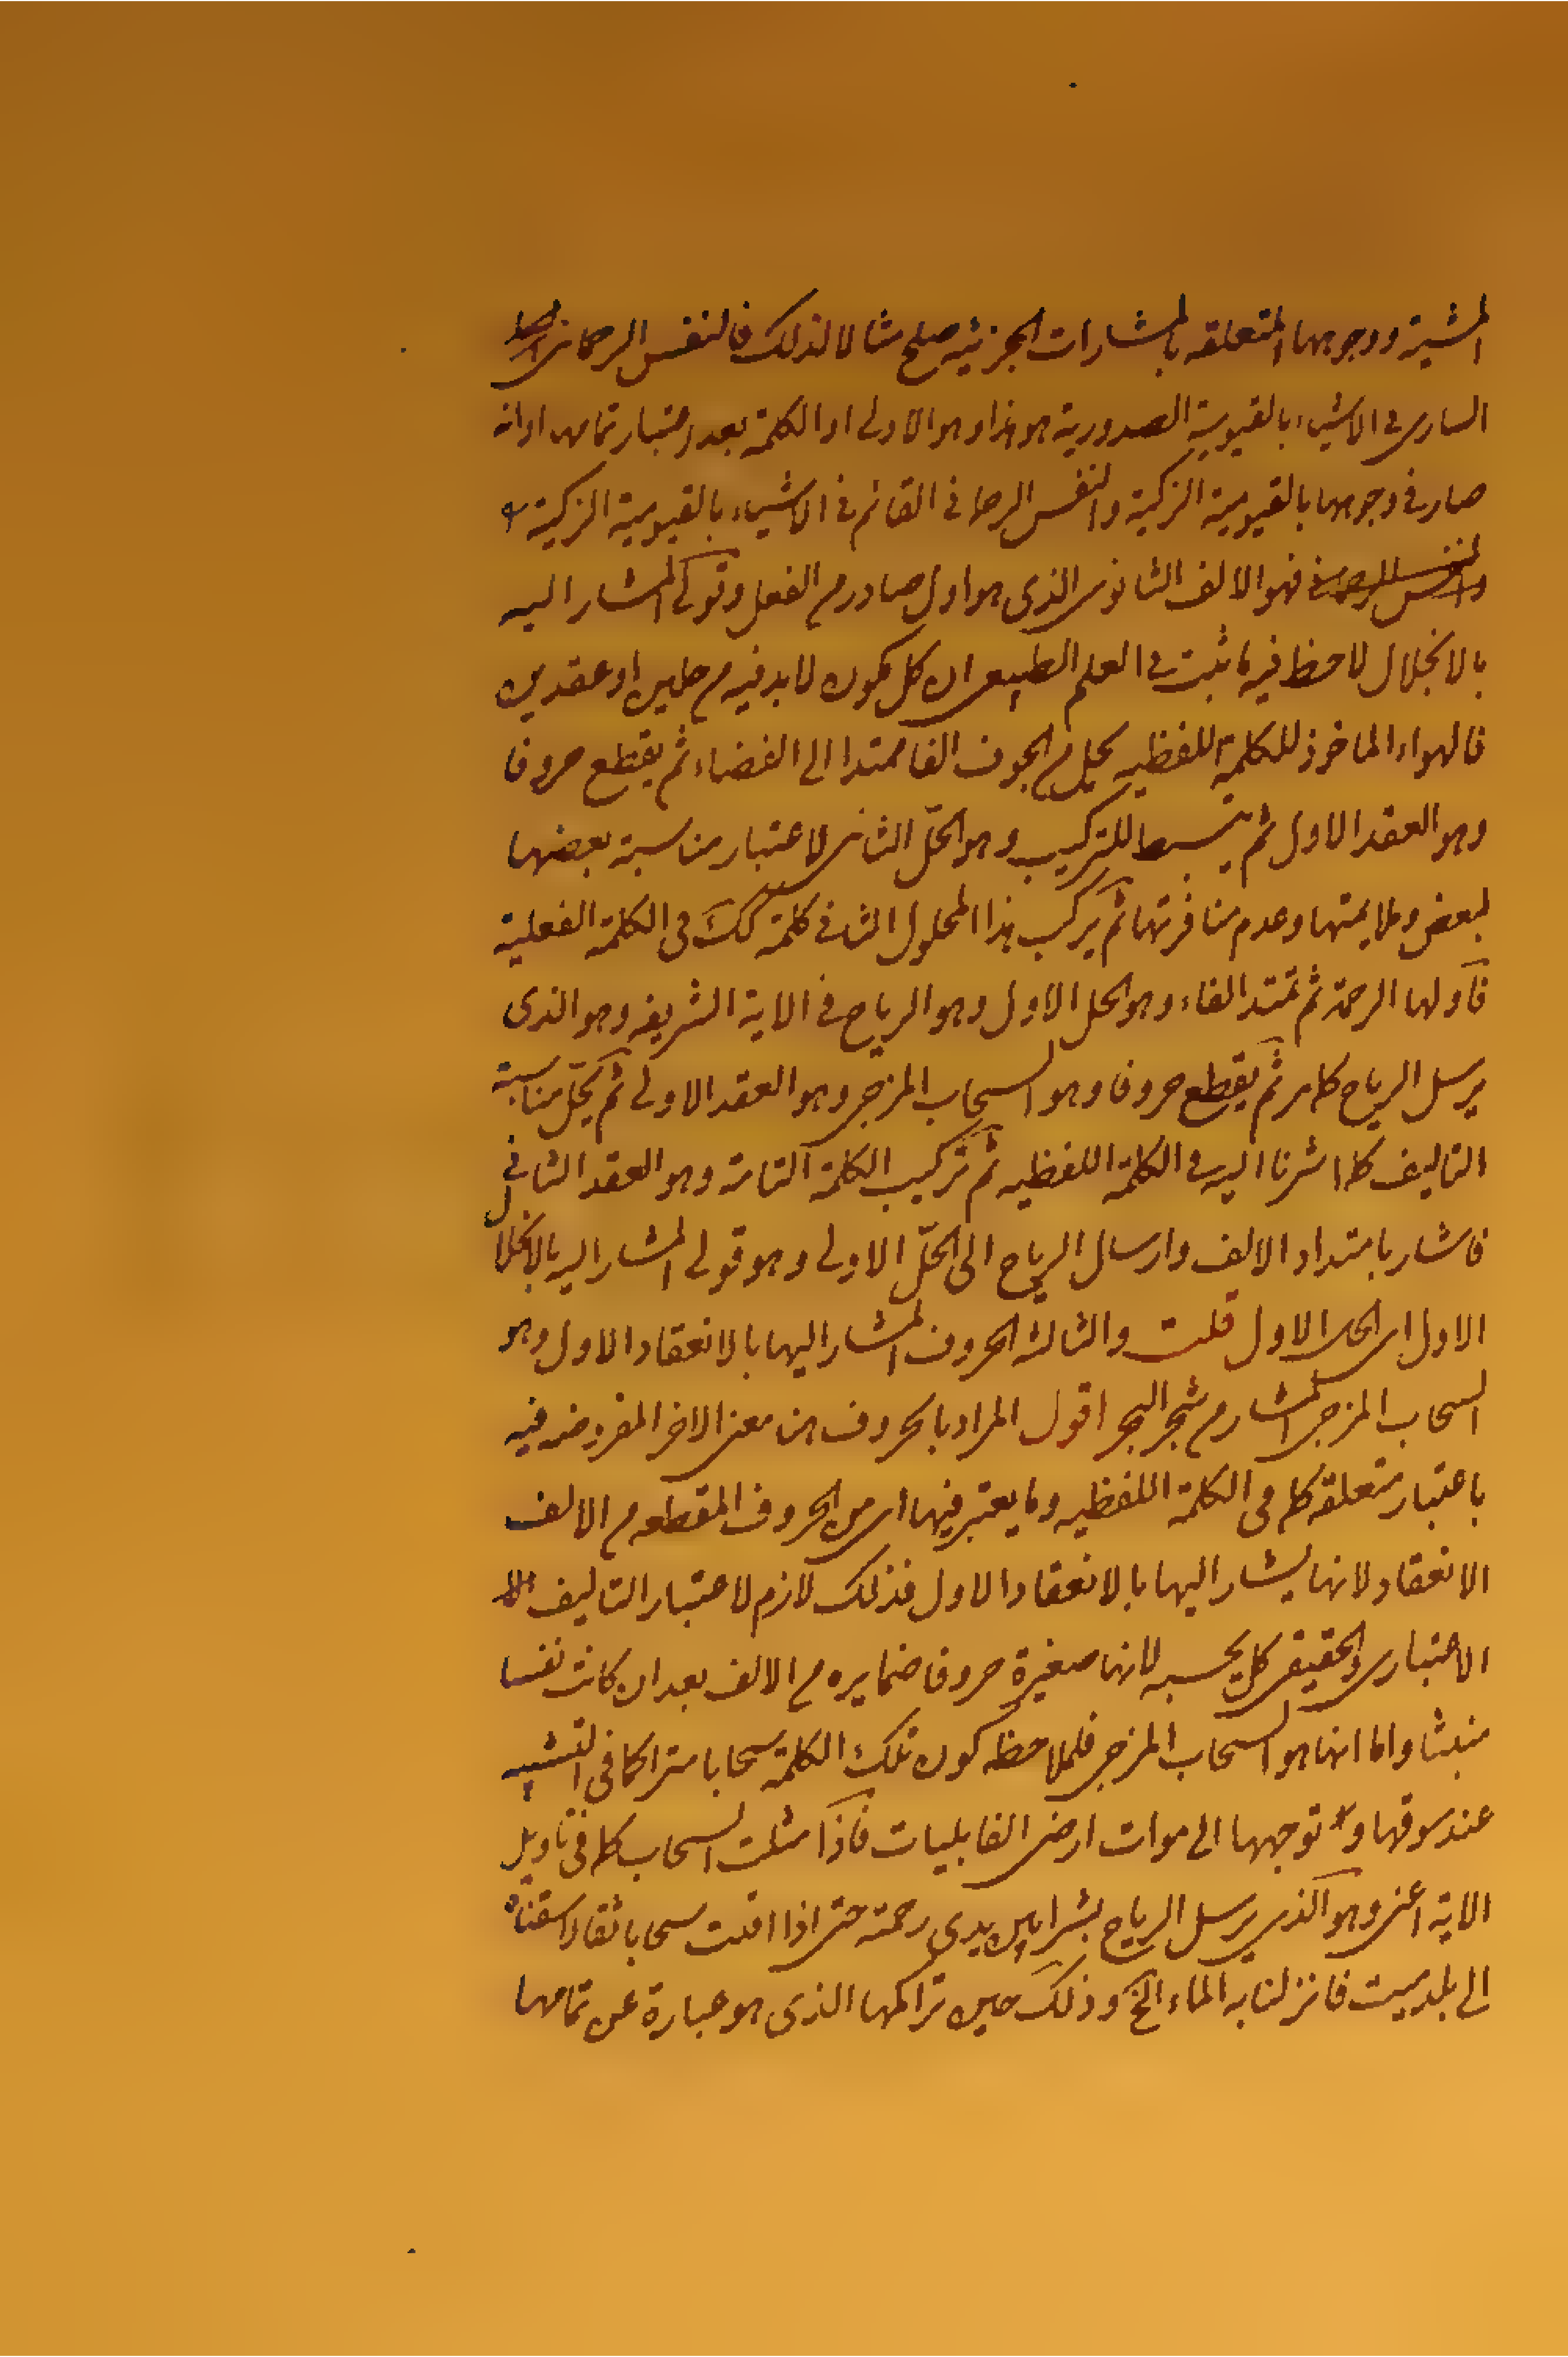 المشية ووجوهها المتعلقه بالمشارات الجزئيه صلح مثالا لذلك فالنفس الرحمانى
السارى فى الاشياء بالقيومية الصدورية هو هذا وهو الاولى او الكلمة بعد اعتبار تمامها او انه
صار فى وجوهها بالقيومية الركنية والنفس الرحمانى القائم فى الاشياء بالقيومية الركنية
والنفس الرحمانى فهو الالف الثانوى الذى هو اول صادر من الفعل وقولى المشار اليه
بالانحلال لاحظ فيه ما ثبت فى العلم الطبيعى ان كل مكون لابد فيه من حلين او عقدين
فالهواء الماخوذ للكلمة اللفظيه يحل من الجوف الفا ممتدا الى الفضاء ثم يقطع حروفا
وهو العقد الاول ثم ينبسط للتركيب وهو الحلّ الثانى لاعتبار مناسبة بعضها
لبعض وملايمتها وعدم منافرتها ثم يركب هذا المحلول الثانى كلمة كك فى الكلمة الفعلية
فاولها الرحمة ثم تمتد الفاء وهو الحل الاول وهو الرياح فى الاية الشريفه وهو الذى
يرسل الرياح كما مر ثم يقطع حروفا وهو السحاب المزجى وهو العقد الاولى ثم يحلّ مناسبة
التاليف كما اشرنا اليه فى الكلمة اللفظيه ثم تركيب الكلمة التامة وهو العقد الثانى
فاشار بامتداد الالف وارسال الرياح الى الحلّ الاولى وهو قولى المشار اليه بالانحلال
الاول اى الحل الاول قلت والثالثة الحروف المشار اليها بالانعقاد الاول وهو
السحاب المزجى المشار من شجر البحر اقول المراد بالحروف هنا معنى الاخر المفروضه فيه
باعتبار متعلقه كما فى الكلمة اللفظيه وما يعتبر فيها اى من الحروف المقطعه من الالف
الانعقاد لانها يشار اليها بالانعقاد الاول فذلك لازم لاعتبار التاليف
الاعتبارى والحقيقى كل بحسبه لانها صغيرة حروفا ضمايره من الالف بعد ان كانت نفسا
منبثا واما انها هو السحاب المزجى فلملاحظه كون تلك الكلمة سحابا متراكما فى التشبيه
عند سوقها و توجهها الى موات ارض القابليات فاذا مثلت السحاب كما فى تاويل
الاية اعنى وهو الذى يرسل الرياح بشرا بين يدى رحمته حتى اذا اقلت سحابا ثقالا سقناه
الى بلد ميت فانزلنا به الماء الخ وذلك حين تراكمها الذى هو عبارة عن تمامها